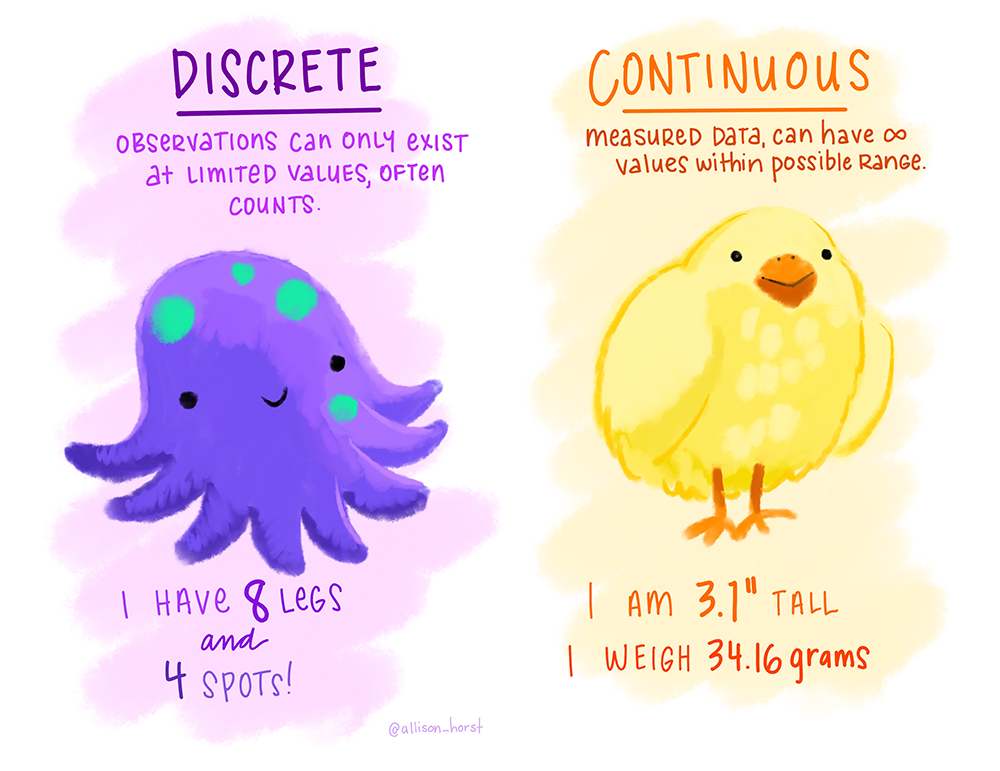 DISCRETE
OBSERVATIONS CAN ONLY EXIST
AT LIMITED VALUES, OFTEN
COUNTS.
I HAVE 8 LEGS
and
4 SPOTS!
@allison_horst
CONTINUOUS
MEASURED DATA, CAN HAVE ∞
VALUES WITHIN POSSIBLE RANGE.
I AM 3.1" TALL
I WEIGH 34.16 grams